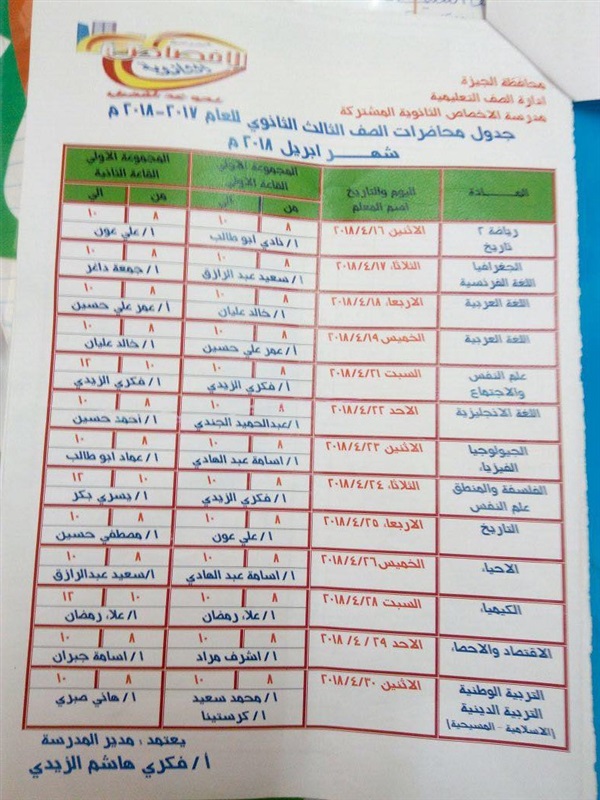 الاخصاص
الثانوية
محافظة الجيزة
ادارة الصف التعليمية
مدرسة الاخصاص الثانوية المشتركة
جدول محاضرات الصف الثالث الثانوي للعام ٢٠١٧-٢٠١٨ م
شهر ابريل ٢٠١٨ م
المادة اليوم والتاريخ المجموعة الاولي المجموعة الاولي
اسم المعلم القاعة الاولي القاعة الثانية
من الي من الي
رياضة ٢ الاثنين ٢٠١٨/٤/١٦ ٨ ١٠ ٨ ١٠
تاريخ أ/ نادي ابو طالب أ/ علي عون
الجغرافيا الثلاثاء ٢٠١٨/٤/١٧ ٨ ١٠ ٨ ١٠
اللغة الفرنسية أ/ سعيد عبد الرازق أ/ جمعة داغر
اللغة العربية الاربعاء ٢٠١٨/٤/١٨ ٨ ١٠ ٨ ١٠
أ/ خالد عليان أ/ عمر علي حسين
اللغة العربية الخميس ٢٠١٨/٤/١٩ ٨ ١٠ ٨ ١٠
أ/ عمر علي حسين أ/ خالد عليان
علم النفس السبت ٢٠١٨/٤/٢١ ٨ ١٠ ١٠ ١٢
والاجتماع أ/ فكري الزيدي أ/ فكري الزيدي
اللغة الانجليزية الاحد ٢٠١٨/٤/٢٢ ٨ ١٠ ٨ ١٠
أ/عبدالحميد الجندي أ/ أحمد حسين
الجيولوجيا الاثنين ٢٠١٨/٤/٢٣ ٨ ١٠ ٨ ١٠
الفيزياء أ/ اسامة عبد الهادي أ/ عماد ابو طالب
الفلسفة والمنطق الثلاثاء ٢٠١٨/٤/٢٤ ٨ ١٠ ١٠ ١٢
علم النفس أ/ فكري الزيدي أ/ يسري بكر
التاريخ الاربعاء ٢٠١٨/٤/٢٥ ٨ ١٠ ٨ ١٠
أ/ علي عون أ/ مصطفي حسين
الاحياء الخميس ٢٠١٨/٤/٢٦ ٨ ١٠ ٨ ١٠
أ/ اسامة عبد الهادي أ/سعيد عبدالرازق
الكيمياء السبت ٢٠١٨/٤/٢٨ ٨ ١٠ ١٠ ١٢
أ/ علاء رمضان أ/ علاء رمضان
الاقتصاد والاحصاء الاحد ٢٩ / ٤ /٢٠١٨ ٨ ١٠ ٨ ١٠
أ/ اشرف مراد أ/ اسامة جبران
التربية الوطنية الاثنين ٢٠١٨/٤/٣٠ ٨ ١٠ ٨ ١٠
التربية الدينية أ/ محمد سعيد أ/ هاني صبري
(الاسلامية - المسيحية) أ/ كرستينا
يعتمد : مدير المدرسة
أ / فكري هاشم الزيدي